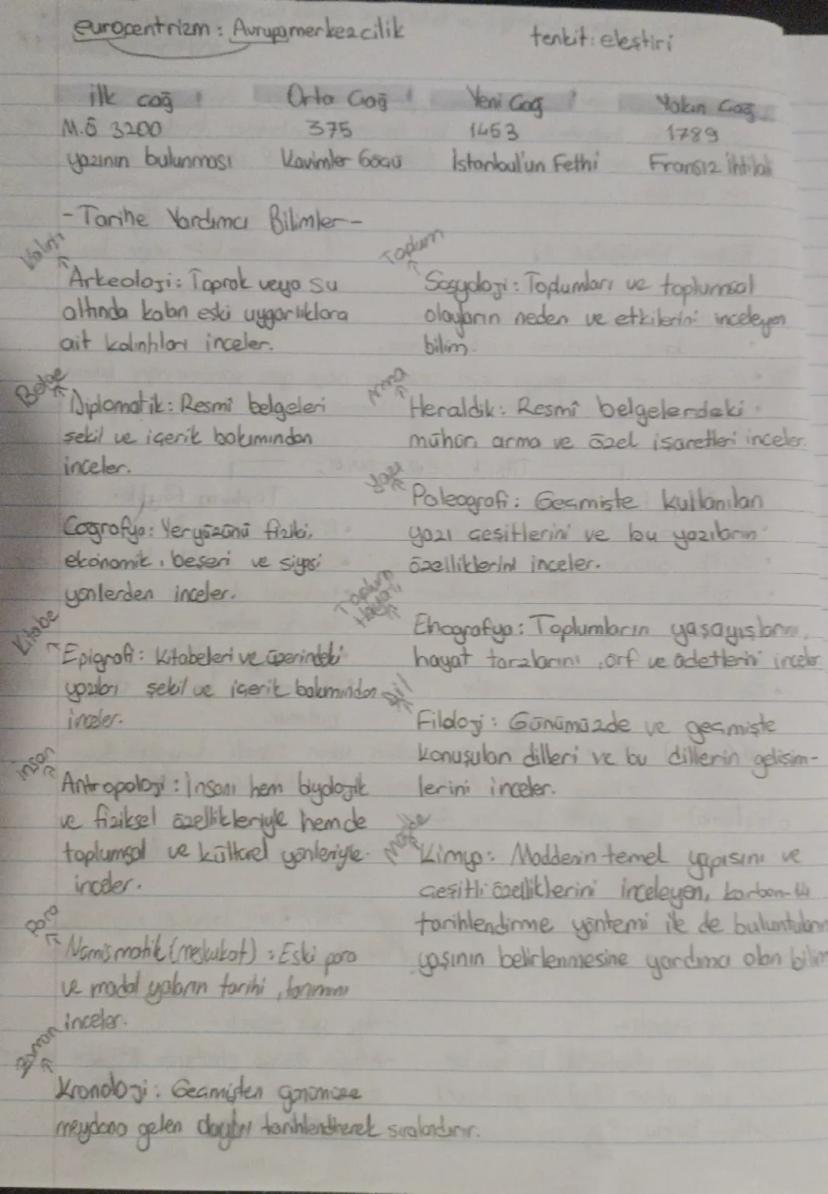 eurocentrizm: Avrupamerkezcilik
tenkit: eleştiri
ilk çağ
Orta Çağ
Yeni Çağ
Yakın Çağ
M.Ö 3200
375
1453
1789
yazının bulunması
Kavimler Göçü
İstanbul'un Fethi
Fransız ihtilali
-Tarihe Yardımcı Bilimler-
Kalıntı
Arkeoloji: Toprak veya su
altında kalan eski uygarlıklara
ait kalıntıları inceler.
Belge
Diplomatik: Resmî belgeleri
şekil ve içerik bakımından
inceler.
Coğrafya: Yeryüzünü fiziki,
ekonomik, beşeri ve siyasi
yönlerden inceler.
Kitabe
Epigrafi: Kitabeleri ve üzerindeki
yazıları şekil ve içerik bakımından
inceler.
insan
Antropoloji: İnsanı hem biyolojik
ve fiziksel özellikleriyle hemde
toplumsal ve kültürel yönleriyle
inceler.
para
Nümismatik (meskukat): Eski para
ve madalyaların tarihi,
inceler.
Zaman
Kronoloji: Geçmişten günümüze
meydana gelen olayları tarihlendirerek sıralandırır.
Toplum
Sosyoloji: Toplumları ve toplumsal
olayların neden ve etkilerini inceleyen
bilim.
Arma
Heraldik: Resmî belgelerdeki
mühür, arma ve özel işaretleri inceler.
yazı
Paleografi: Geçmişte kullanılan
yazı çeşitlerini ve bu yazıların
özelliklerini inceler.
Toplum
Hayatı
Etnografya: Toplumların yaşayışlarını,
hayat tarzlarını, örf ve âdetlerini inceler
dil
Filoloji: Günümüzde ve geçmişte
konuşulan dilleri ve bu dillerin gelişim-
lerini inceler.
Madde
Kimya: Maddenin temel yapısını ve
çeşitli özelliklerini inceleyen, karbon-14
tarihlendirme yöntemi ile de buluntuların
yaşının belirlenmesine yardımcı olan bilim